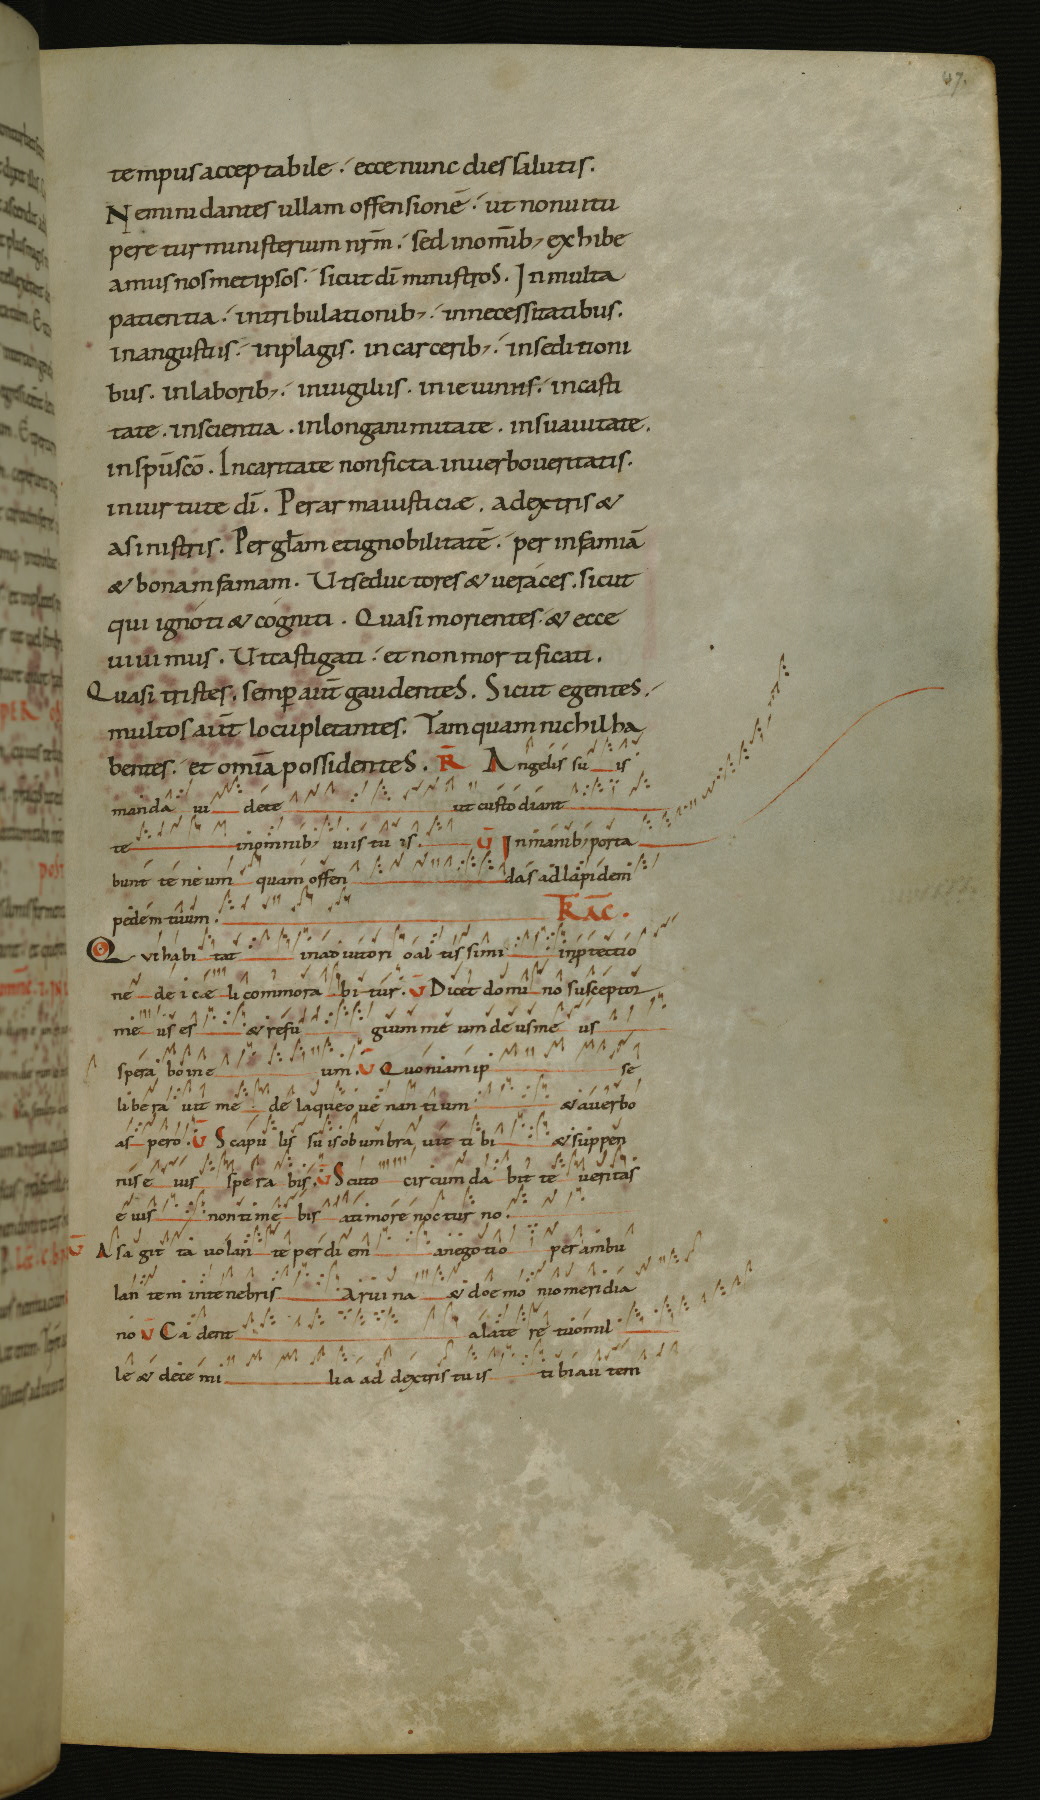 47.
tempus acceptabile. ecce nunc dies salutis.
Nemini dantes ullam offensionē. ut non uitu
peretur ministerium nrm̄. sed inomīb; exhibe
amus nosmetipsos. sicut dī ministros. In multa
patientia. intribulationib;. innecessitatibus.
inangustiis. inplagis. incarcerib;. inseditioni
bus. inlaborib;. inuigiliis. inieiuniis. incasti
tate. inscientia. inlonganimitate. insuauitate.
inspū scō. Incaritate nonficta inuerbo ueritatis.
inuirtute dī. Per arma iusticiæ. adextris &
asinistris. Per glām et ignobilitatē. per infamiā
& bonam famam. Ut seductores & ueraces. sicut
qui ignoti & cogniti. Quasi morientes. & ecce
uiuimus. Ut castigati. et non mortificati.
Quasi tristes. semp aūt gaudentes. Sicut egentes.
multos aūt locupletantes. Tamquam nichil ha
bentes. et omīa possidentes. R̄ Angelis su is
manda ui de te ut custodiant
te inomnib; uiis tu is. V̄ In manib; porta
bunt te neum quam offen das ad lapidem
pedem tuum. TRAC.
Qui habi tat inadiutori o al tissimi inprotectio
ne de i cæ li commora bi tur. V̄ Dicet domi no susceptor
me us es & refu gium me um deus me us
spera bo in e um. V̄ Quoniam ip se
libera uit me de laqueo uenantium & auerbo
as pero. V̄ Scapu lis su is obumbra uit ti bi & sub pen
nis e ius spe ra bis. V̄ Scuto circumda bit te ueritas
e ius non time bis atimore noctur no.
V̄ Asagit ta uolan te per di em anegotio perambu
lan tem intenebris Aruina & doemo nio meridia
no V̄ Cadent alate re tuo mil
le & dece mi lia ad dextris tu is ti bi autem